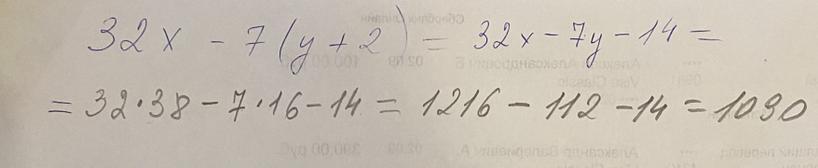 32x - 7(y+2) = 32x - 7y - 14 =
= 32·38 - 7·16 - 14 = 1216 - 112 - 14 = 1090